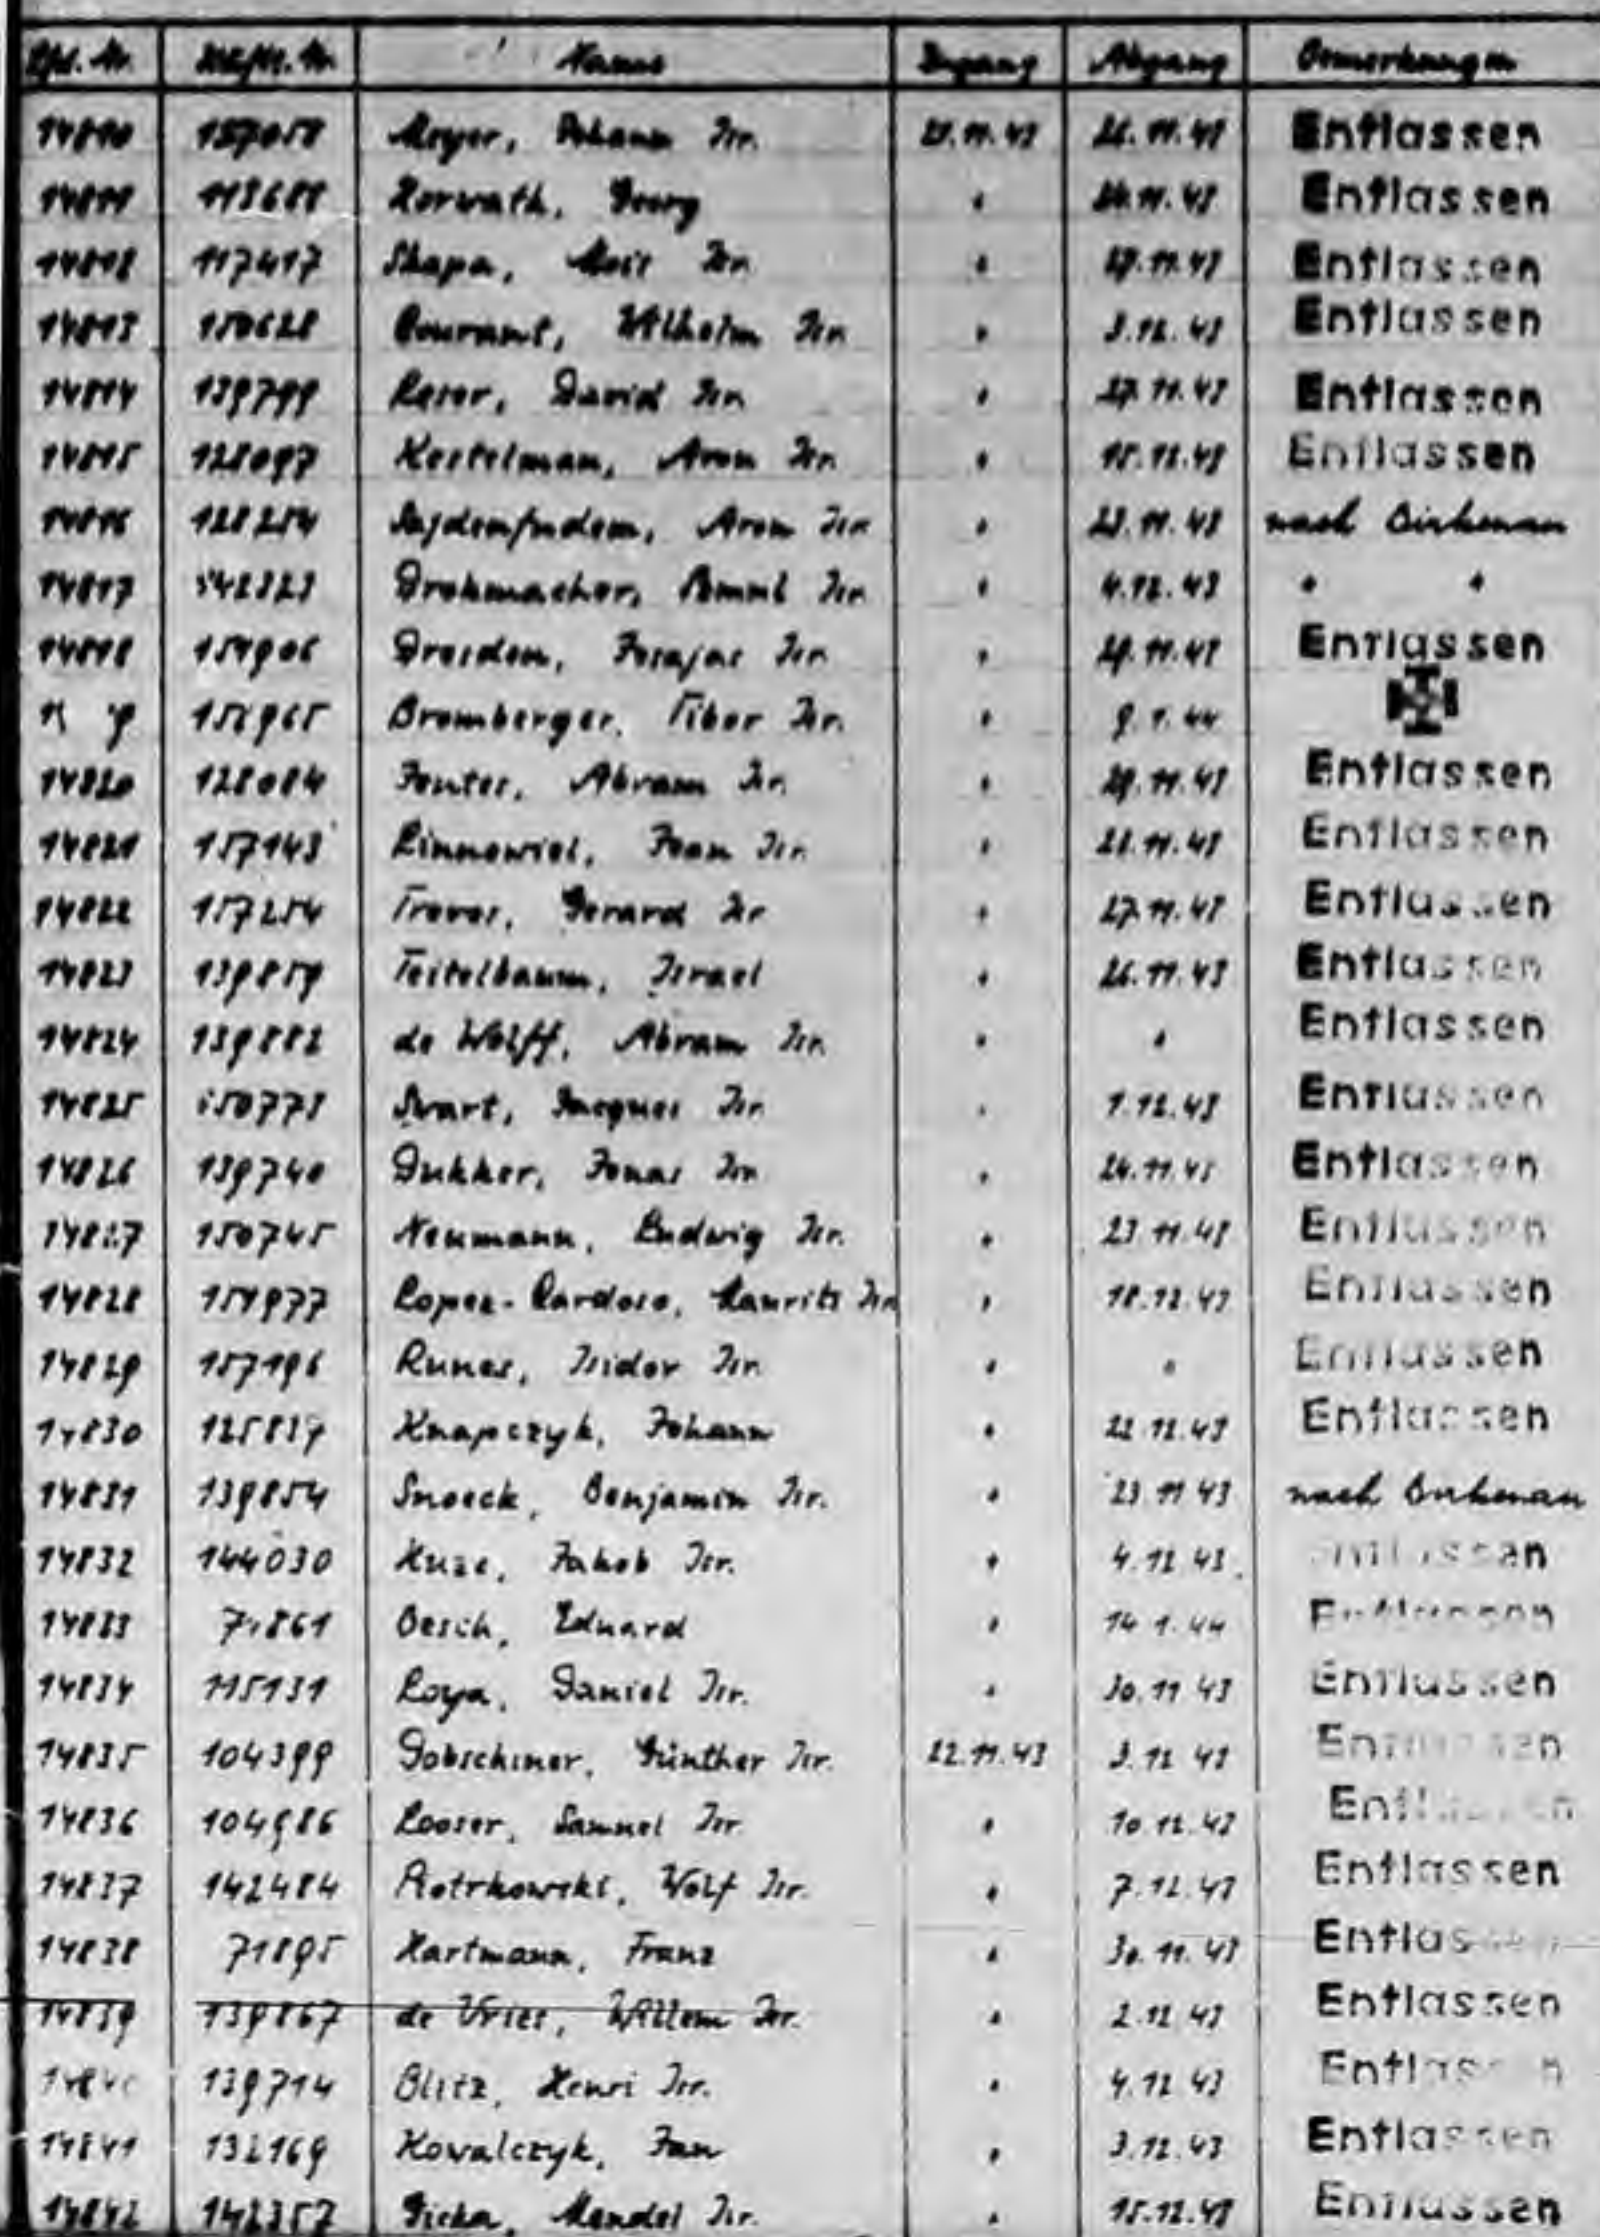 Lfd. Nr. Häftl. Nr. Name Zugang Abgang Bemerkungen
14810 Meyer, Johann Isr. 21.11.43 26.11.43 Entlassen
14811 Horwath, Georg " Entlassen
14812 117417 Shapa, Isr. " 27.11.43 Entlassen
14813 150628 Courant, Wilhelm Isr. " 3.12.43 Entlassen
14814 139799 Leser, David Isr. " 27.11.43 Entlassen
14815 128097 Kestelman, Aron Isr. " 15.12.43 Entlassen
14816 128254 Aron Isr. " 23.11.43 nach Birkenau
14817 142323 Drukmacher, Isr. " 4.12.43 " "
14818 151906 Dresden, Josajas Isr. " 29.11.43 Entlassen
Bromberger, Tibor Isr. " 9.1.44
14820 128084 Fenter, Abram Isr. " 29.11.43 Entlassen
14821 157143 Jean Isr. " Entlassen
14822 157254 Treves, Gerard Isr. " 27.11.43 Entlassen
14823 139859 Teitelbaum, Israel " 26.11.43 Entlassen
14824 139882 de Wolff, Abram Isr. " " Entlassen
14825 150773 Swart, Jacques Isr. " 1.12.43 Entlassen
14826 139740 Dukker, Jonas Isr. " 24.11.43 Entlassen
14827 150745 Neumann, Ludwig Isr. " 23.11.43 Entlassen
14828 151977 Lopez-Cardoso, Maurits Isr. " 18.12.43 Entlassen
14829 157196 Runes, Isidor Isr. " " Entlassen
14830 125837 Knapczyk, Johann " 22.12.43 Entlassen
14831 139854 Snoeck, Benjamin Isr. " 23.11.43 nach Birkenau
14832 144030 Huze, Jakob Isr. " 4.12.43 Entlassen
14833 71861 Oesch, Eduard " 14.1.44 Entlassen
14834 115131 Loya, Daniel Isr. " 30.11.43 Entlassen
14835 104399 Dobschiner, Günther Isr. 22.11.43 3.12.43 Entlassen
14836 104986 Looser, Samuel Isr. " 10.12.43 Entlassen
14837 142484 Piotrkowski, Wolf Isr. " 7.12.43 Entlassen
14838 71895 Hartmann, Franz " 30.11.43 Entlassen
14839 139867 de Vries, Willem Isr. " 2.12.43 Entlassen
14840 139714 Blitz, Henri Isr. " 4.12.43 Entlassen
14841 132169 Kowalczyk, Jan " 3.12.43 Entlassen
14842 142357 Mendel Isr. " 15.12.43 Entlassen